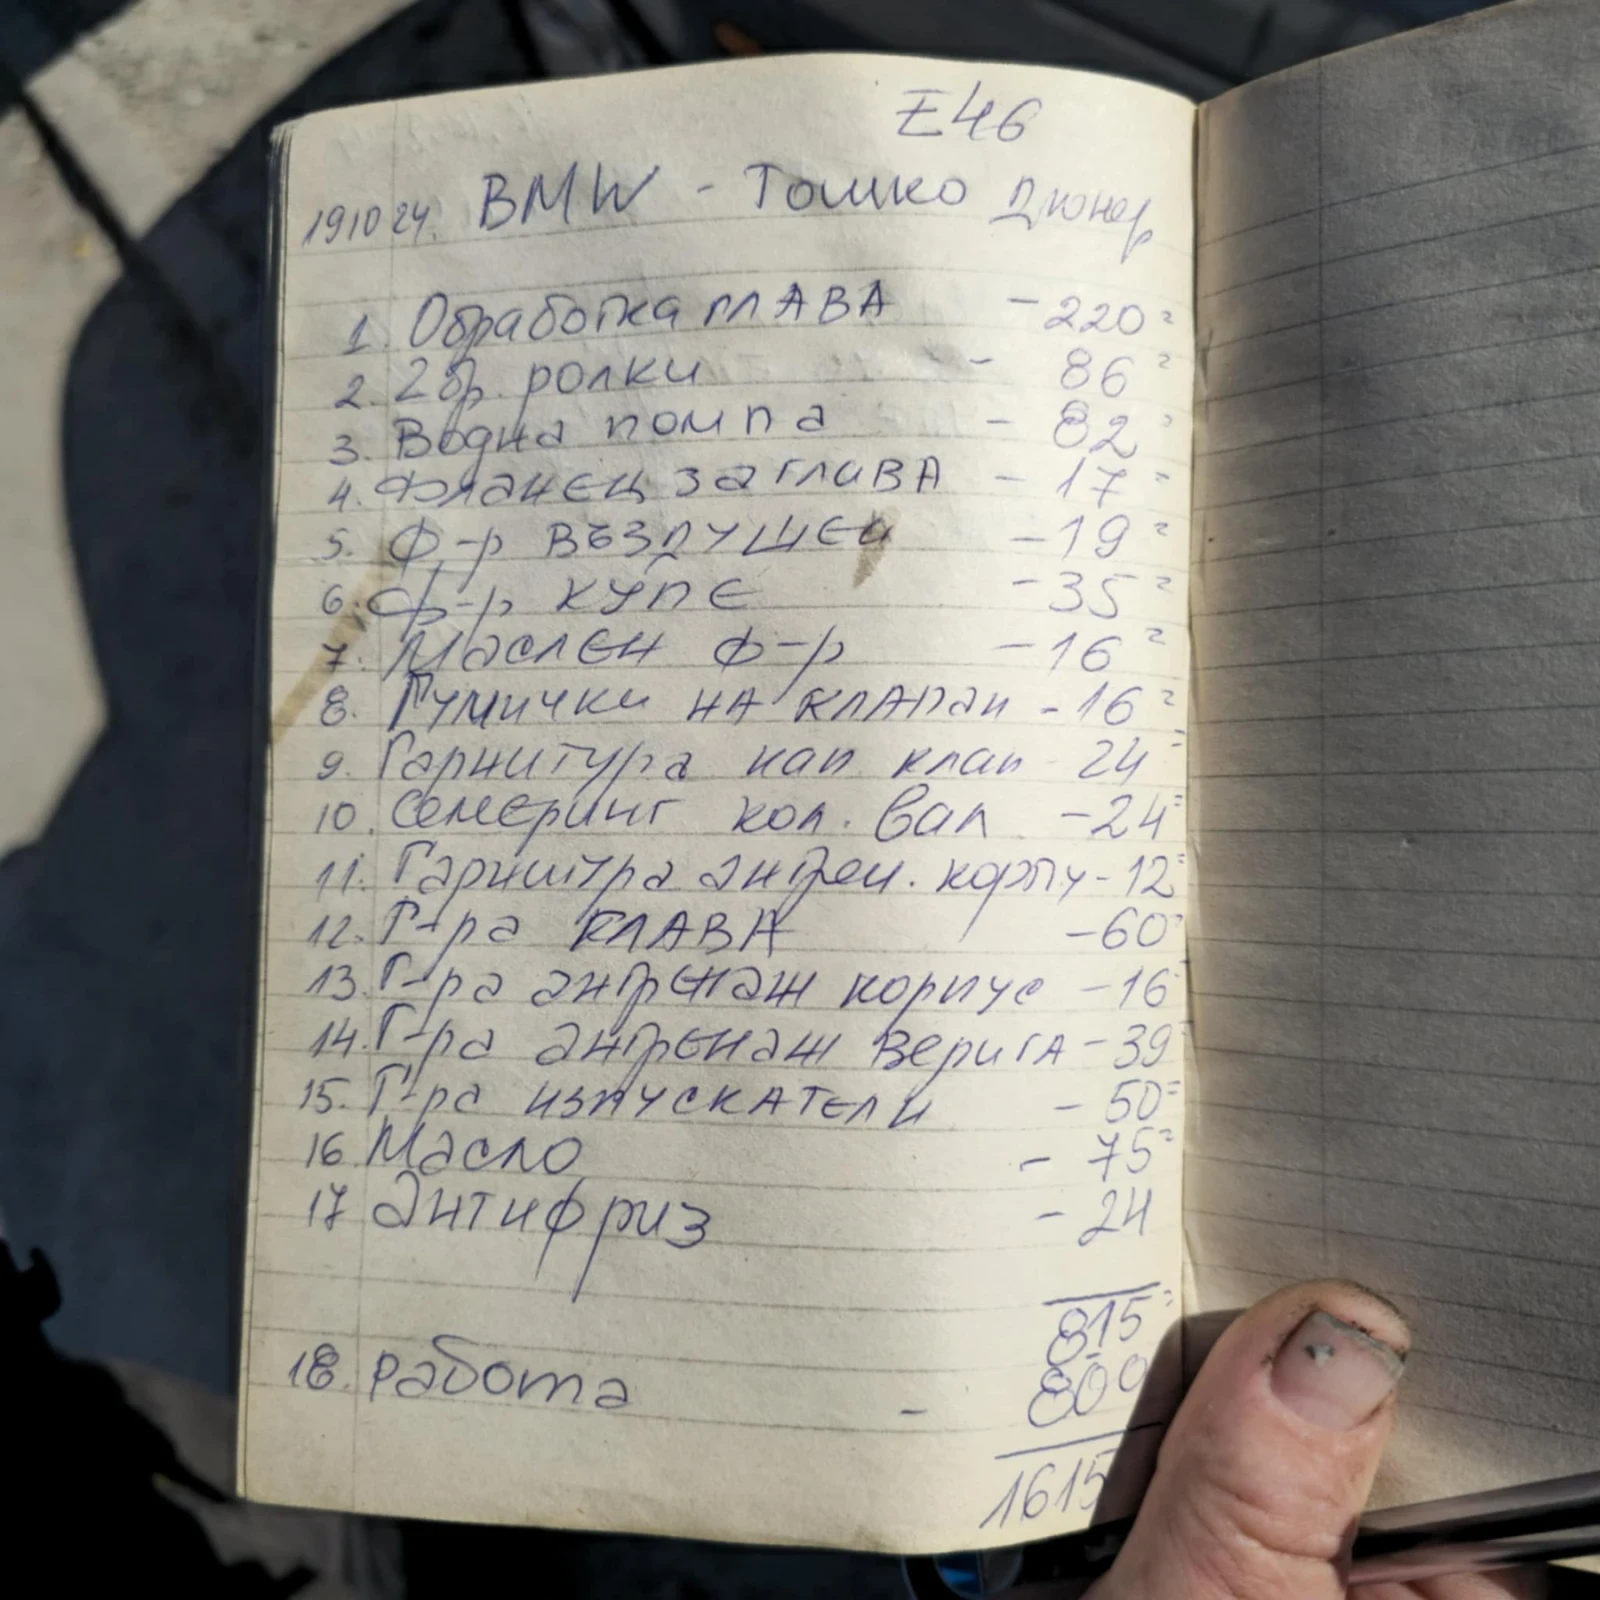 E46
191024. BMW - Тошко Дюнер
1. Обработка глАВА - 220=
2. 2бр. ролки - 86=
3. Водна помпа - 82=
4. Фланец за глаВА - 17=
5. Ф-р въздушен - 19=
6. Ф-р купе - 35=
7. Маслен ф-р - 16=
8. Гумички НА клапан - 16=
9. Гарнитура кап клап - 24=
10. Семеринг кол. вал - 24=
11. Гарнитра ангрен. корпу - 12=
12. Г-ра ГЛАВА - 60=
13. Г-ра ангренаж корпус - 16=
14. Г-ра ангренаж веригА - 39
15. Г-ра изпускатели - 50=
16. Масло - 75=
17 Антифриз - 24
815=
18. работа - 800
1615